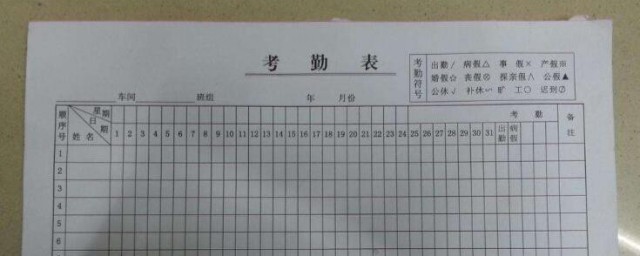 考勤表
考勤符号
出勤/ 病假△ 事假× 产假⊞
婚假☆ 丧假⊗ 探亲假∧ 公假▲
公休√ 补休∽ 旷工○ 迟到∅
车间 班组 年 月份
顺序号 星期 日期 姓名 考勤 备注
1 2 3 4 5 6 7 8 9 10 11 12 13 14 15 16 17 18 19 20 21 22 23 24 25 26 27 28 29 30 31 出勤 病假
1
2
3
4
5
6